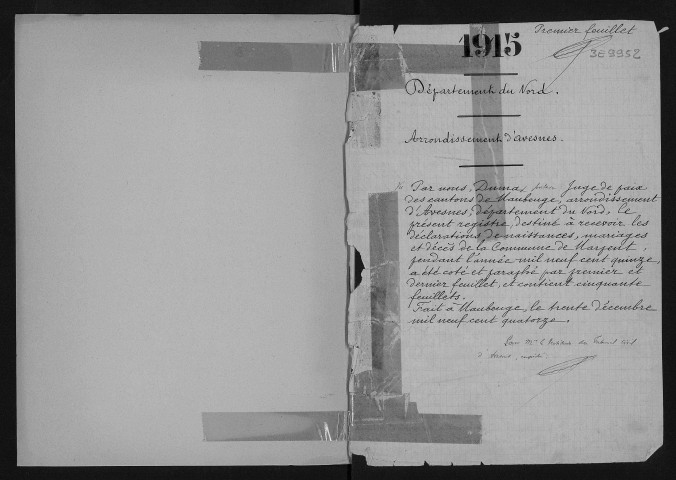 Premier feuillet
1915
3E9952
Département du Nord.
Arrondissement d'Avesnes.
Par nous, Dumax Juge de paix
des cantons de Maubeuge, arrondissement
d'Avesnes, département du Nord, le
présent registre, destiné à recevoir les
déclarations de naissances, mariages
et décès de la Commune de Marpent,
pendant l'année mil neuf cent quinze,
a été coté et paraphé par premier et
dernier feuillet, et contient cinquante
feuillets.
Fait à Maubeuge, le trente décembre
mil neuf cent quatorze.